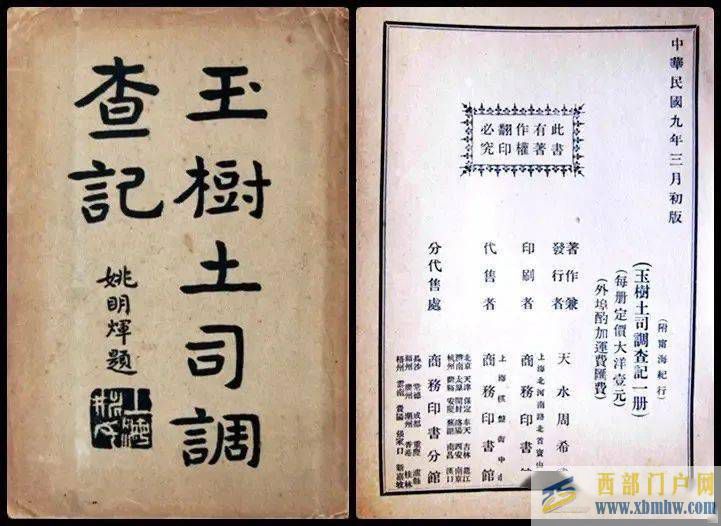 玉樹土司調
查記
姚明煇題
中華民國九年三月初版
此書
有著
作權
翻印
必究
(附甯海紀行)
(玉樹土司調查記一册)
(每册定價大洋壹元)
(外埠酌加運費匯費)
著作兼
發行者 天水周希
上海北河南路北首寶山
印刷者 商務印書館
上海棋盤街中
代售者 商務印書館
分代售處 商務印書分館
北京 天津 保定 奉天 吉林 龍江
濟南 太原 開封 洛陽 西安 南京
杭州 蘭谿 安慶 蕪湖 南昌
長沙 常德 成都 重慶 瀘縣
福州 廣州 潮州 香港 桂林
梧州 雲南 貴陽 張家口 新嘉坡
西部门户网
www.xbmhw.com